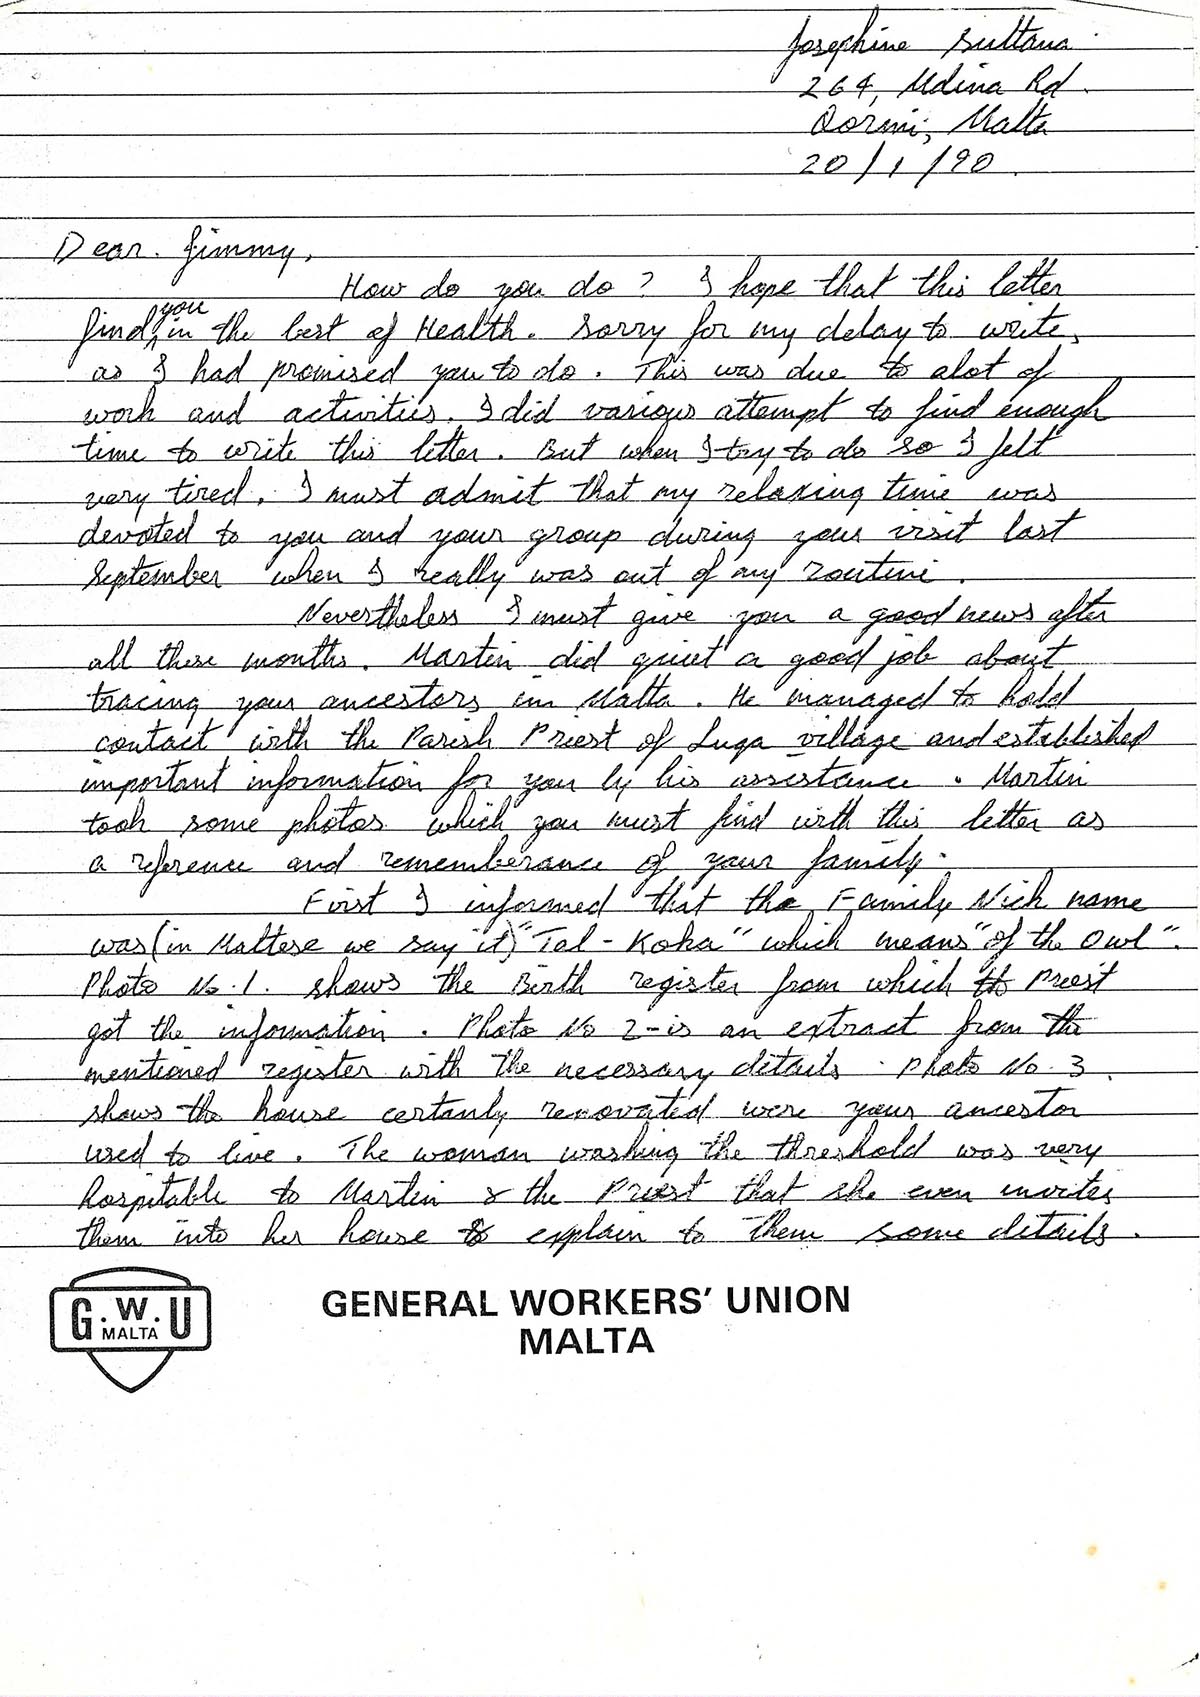 Josephine Sultana
264, Mdina Rd.
Qormi, Malta
20/1/90.
Dear. Jimmy,
How do you do? I hope that this letter
you
find in the best of Health. Sorry for my delay to write,
as I had promised you to do. This was due to alot of
work and activities. I did various attempt to find enough
time to write this letter. But when I try to do so I felt
very tired. I must admit that my relaxing time was
devoted to you and your group during your visit last
September when I really was out of my routine.
Nevertheless I must give you a good news after
all these months. Martin did quiet a good job about
tracing your ancestors in Malta. He managed to hold
contact with the Parish Priest of Luqa village and established
important information for you by his assistance. Martin
took some photos which you must find with this letter as
a reference and rememberance of your family.
First I informed that the Family Nick name
was (in Maltese we say it) "Tal-Koka" which means "of the Owl".
Photo No.1. shows the Birth register from which Priest
got the information. Photo No 2-is an extract from the
mentioned register with the necessary details. Photo No. 3.
shows the house certanly renovated were your ancestor
used to live. The woman washing the threshold was very
hospitable to Martin & the Priest that she even invites
them into her house to explain to them some details.
G.W.U
MALTA
GENERAL WORKERS' UNION
MALTA